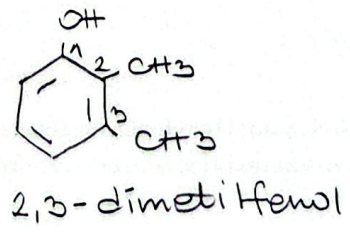 OH
1
2 CH3
3
CH3
2,3-dimetilfenol